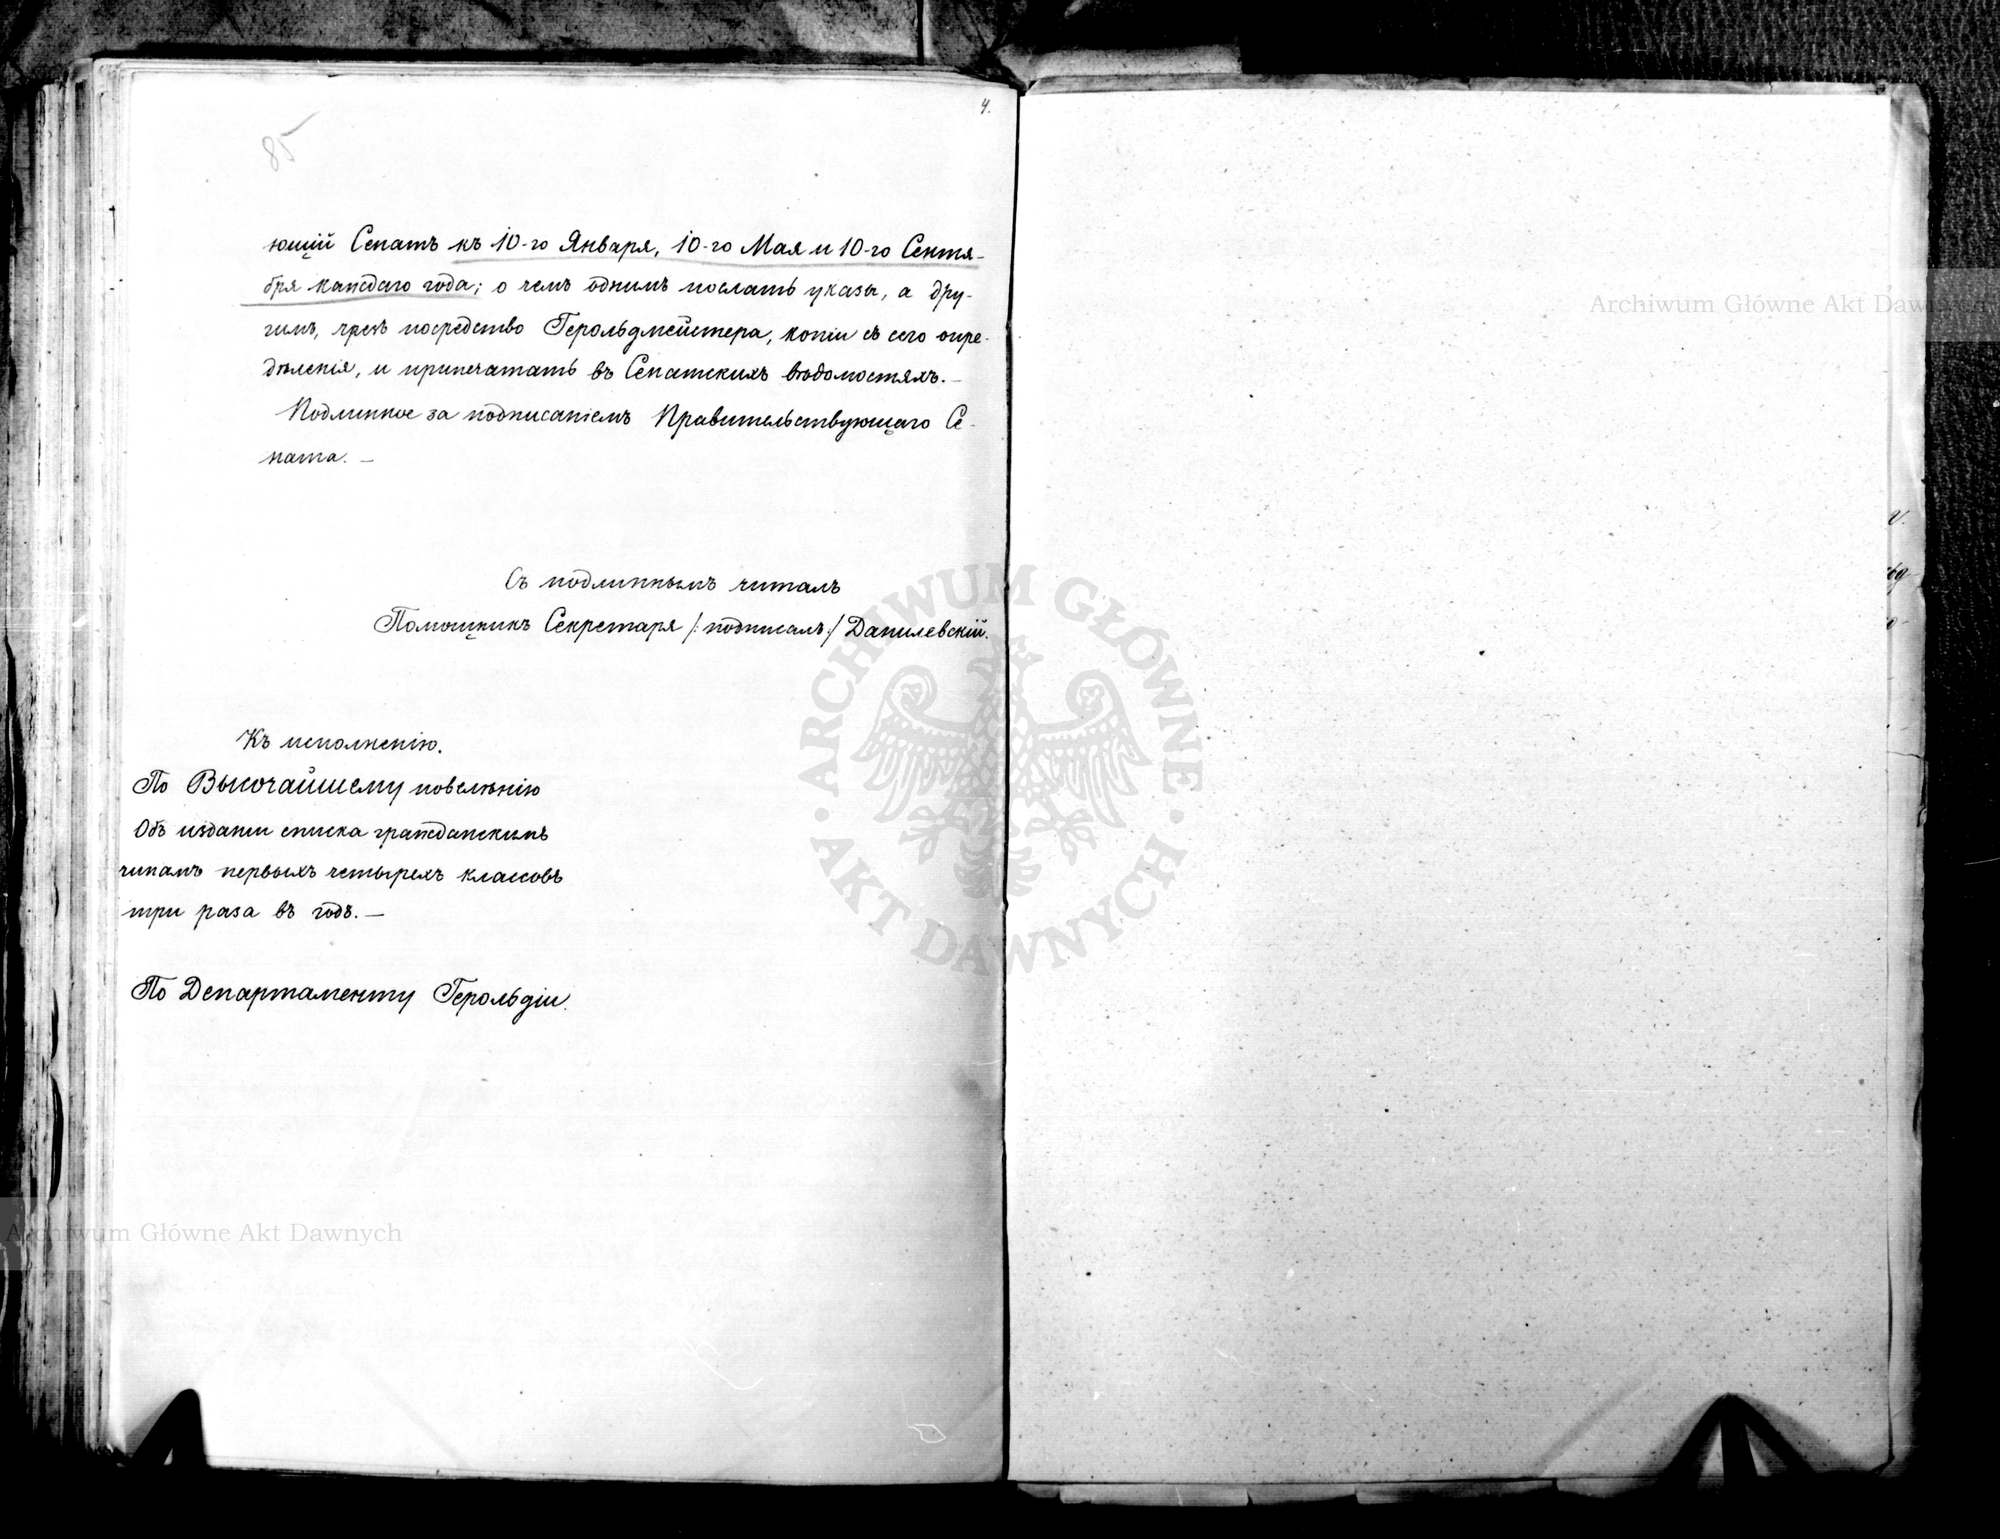 4.
85
ющій Сенатъ къ 10-го Января, 10-го Мая и 10-го Сентя-
бря каждаго года; о чемъ однимъ послать указы, а дру-
гимъ, чрезъ посредство Герольдмейстера, копіи съ сего опре-
дѣленія, и припечатать въ Сенатскихъ вѣдомостяхъ. —
Подлинное за подписаніемъ Правительствующаго Се-
ната. —
Съ подлиннымъ читалъ
Помощникъ Секретаря /:подписалъ:/ Данилевскій.
Къ исполненію.
По Высочайшему повелѣнію
Объ изданіи списка гражданскимъ
чинамъ первыхъ четырехъ классовъ
три раза въ годъ. —
По Департаменту Герольдіи.
Archiwum Główne Akt Dawnych
ARCHIWUM GŁÓWNE AKT DAWNYCH
Archiwum Główne Akt Dawnych